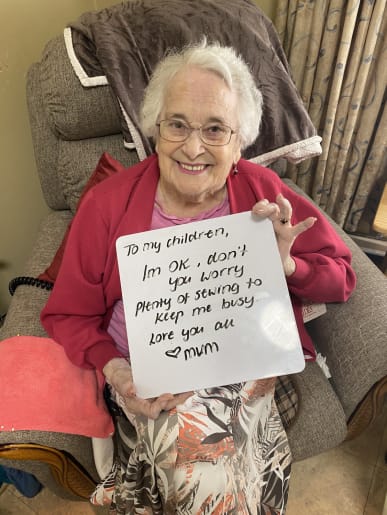 To my children,
Im OK, don't
you worry
Plenty of sewing to
keep me busy
Love you all
♡mum